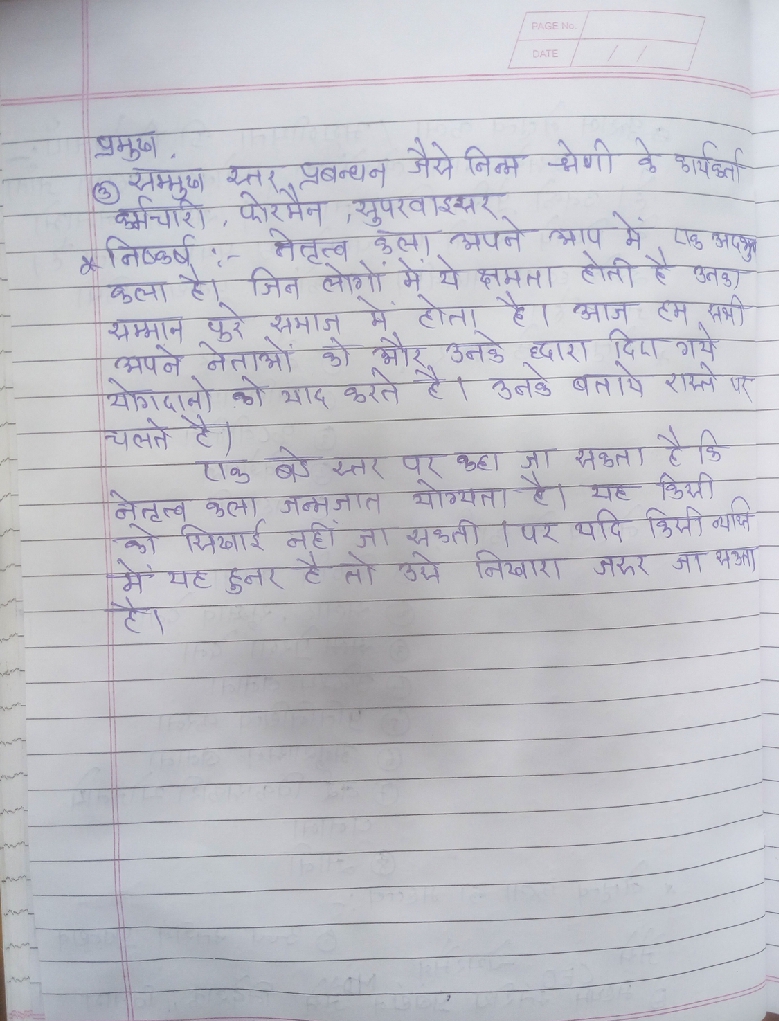 PAGE No.
DATE / /
प्रमुख.
③ सम्मुख स्तर, प्रबन्धन जैसे निम्न श्रेणी के कार्यकर्ता
कर्मचारी, फोरमैन, सुपरवाइसर
* निष्कर्ष :- नेतृत्व कला अपने आप में एक अदभुत
कला है। जिन लोगों में ये क्षमता होती है उनका
सम्मान पुरे समाज में होता है। आज हम सभी
अपने नेताओं को और उनके द्वारा दिए गये
योगदानो को याद करते है। उनके बताये रास्ते पर
चलते है।
एक बडे स्तर पर कहा जा सकता है कि
नेतृत्व कला जन्मजात योग्यता है। यह किसी
को सिखाई नहीं जा सकती। पर यदि किसी व्यक्ति
में यह हुनर है तो उसे निखारा जरुर जा सकता
है।